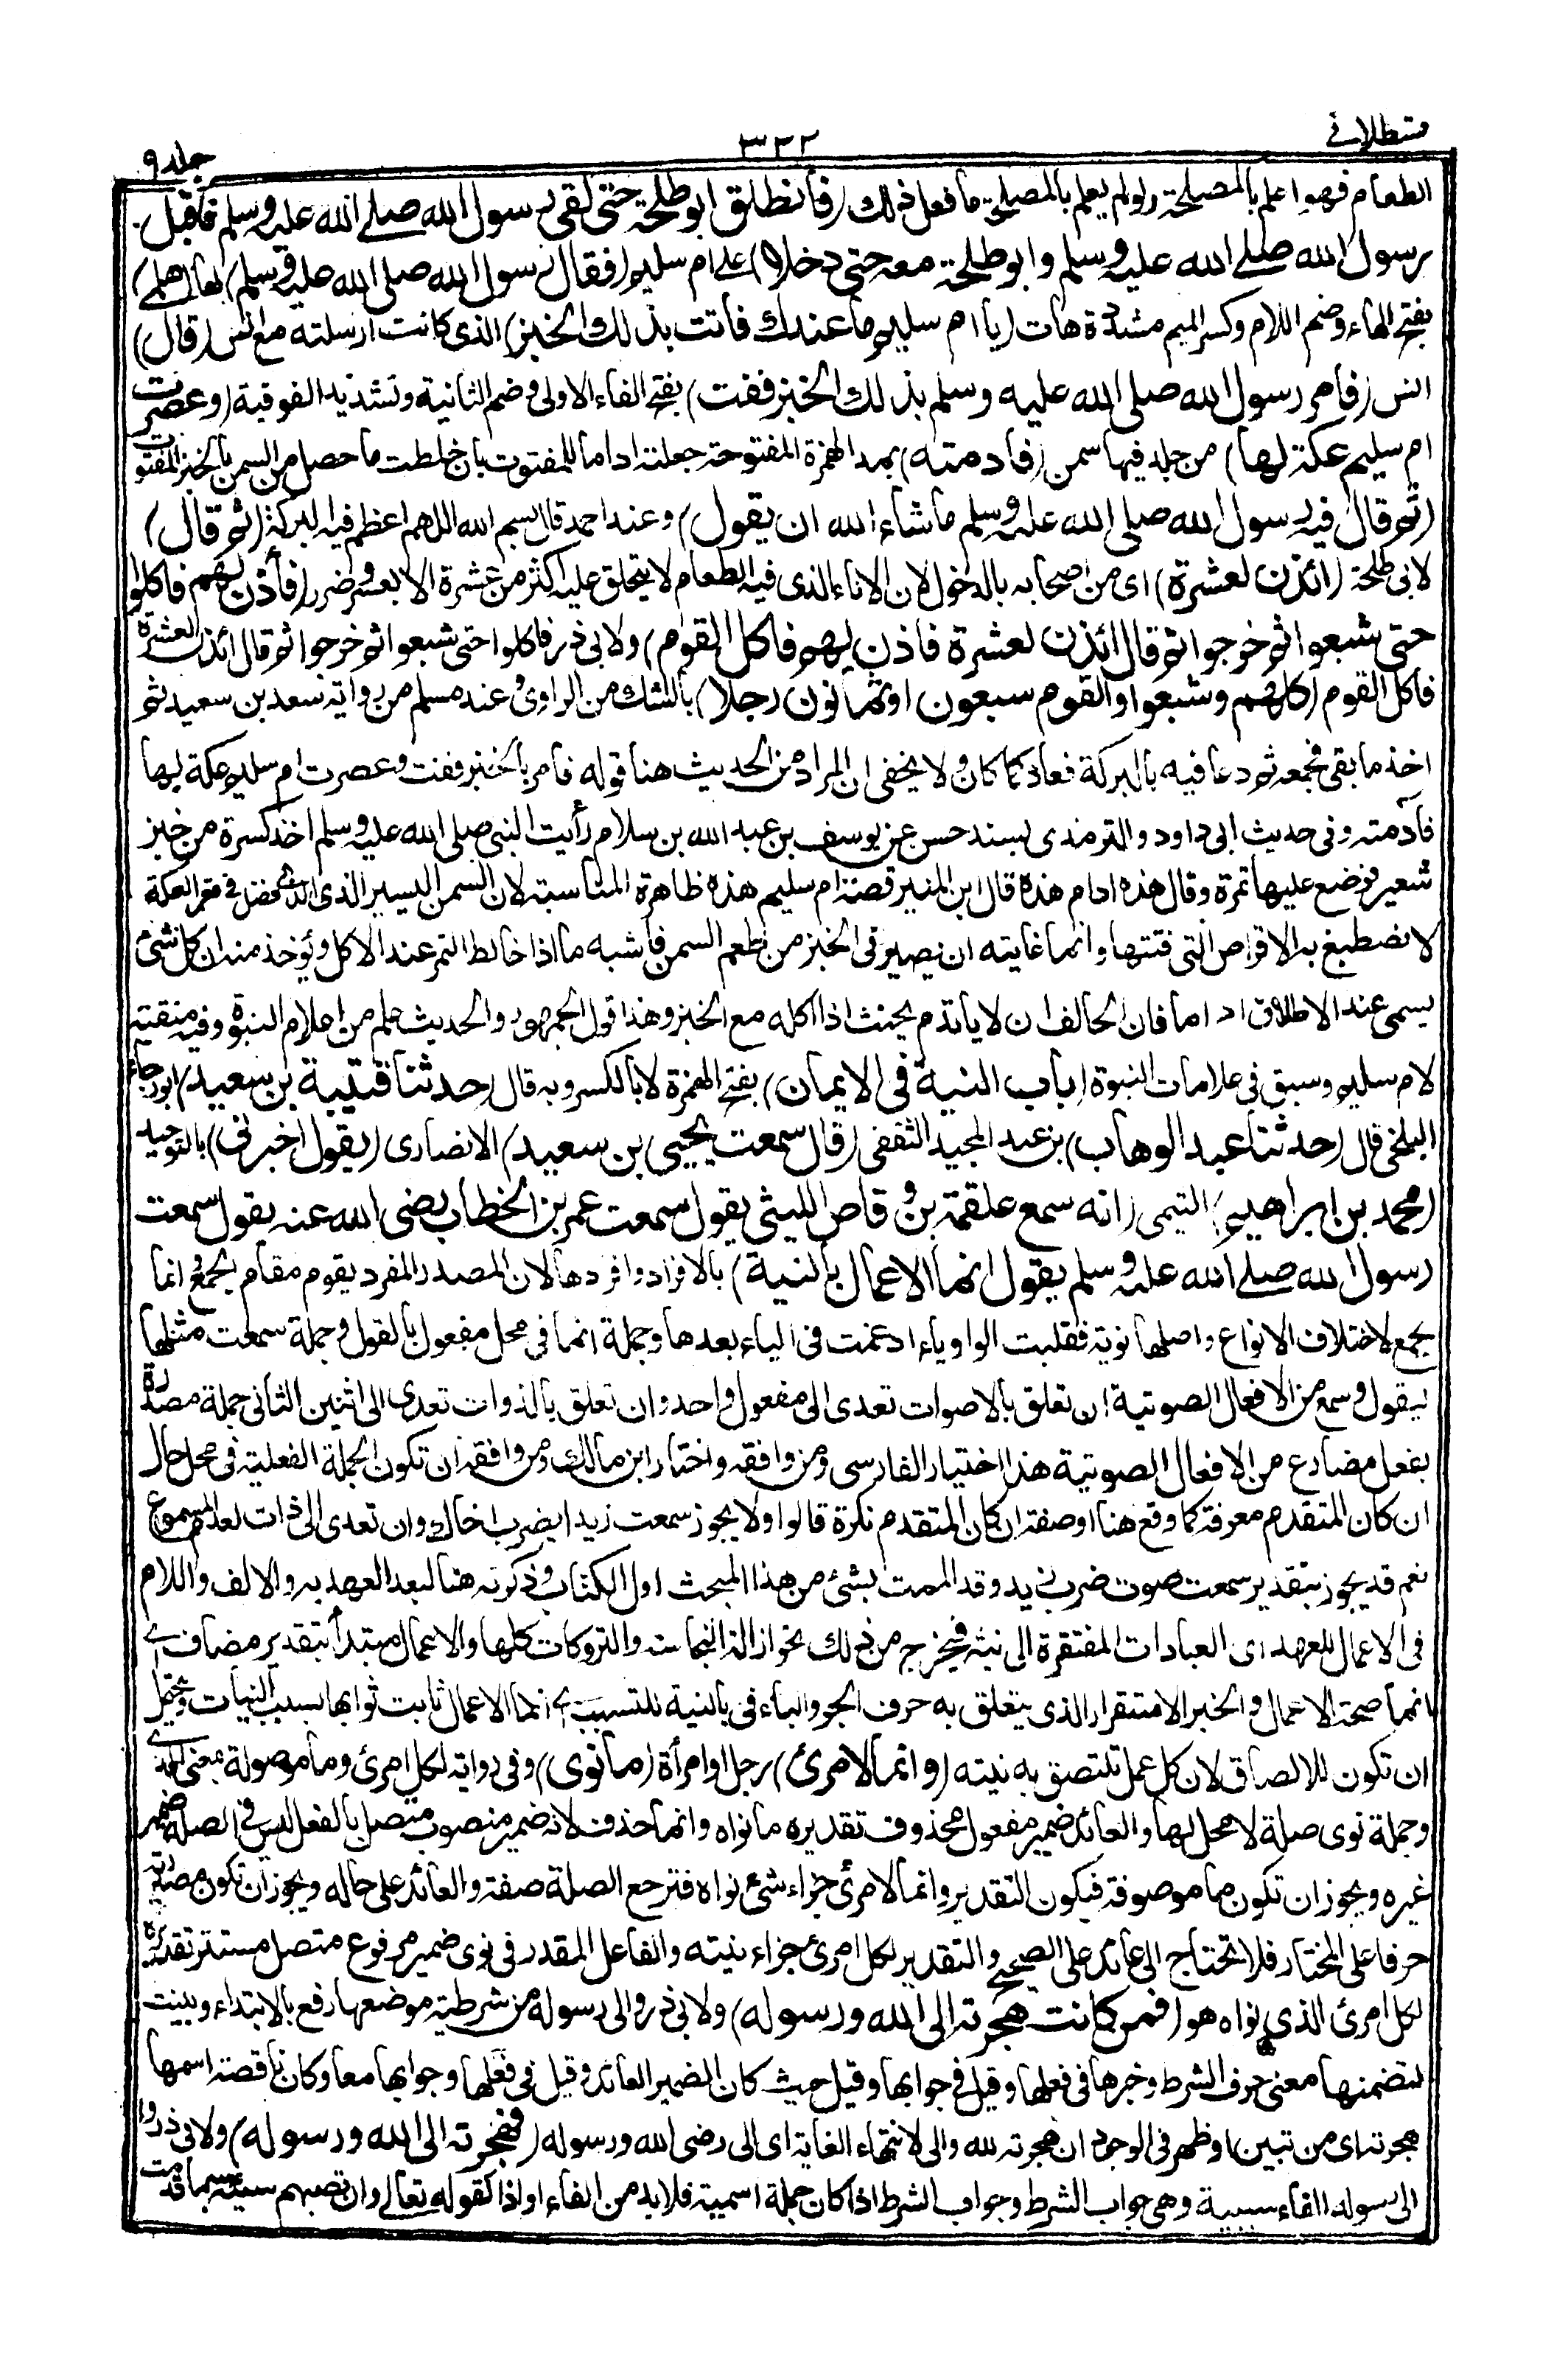 قسطلانی
٣٣٢
جلد ٩
الطعام فهو اعلم بالمصلحة ولولم يعلم بالمصلحة ما فعل ذلك (فانطلق ابو طلحة حتى لقى رسول الله صلے الله عليه وسلم فاقبل
رسول الله صلے الله عليه وسلم وابو طلحة معه حتى دخلا) على ام سليم (فقال رسول الله صلى الله عليه وسلم) لها (هلمى)
بفتح الهاء وضم اللام وكسر الميم مشددة هات (يا ام سليم ما عندك فاتت بذلك الخبز) الذى كانت ارسلته مع انس (قال)
انس (فامر رسول الله صلى الله عليه وسلم بذلك الخبز ففت) بفتح الفاء الاولى وضم الثانية وتشديد الفوقية (وعصرت
ام سليم عكة لها) من جلد فيها سمن (فادمته) بمد الهمزة المفتوحة جعلته اداما للمفتوت بان خلطت ما حصل من السمن بالخبز المفتوت
(ثم قال فيه رسول الله صلى الله عليه وسلم ما شاء الله ان يقول) وعند احمد قال بسم الله اللهم اعظم فيه البركة (ثم قال)
لابى طلحة (ائذن لعشرة) اى من اصحابه بالدخول لان الاناء الذى فيه الطعام لا يتحلق عليه اكثر من عشرة الا بعسر وضرر (فأذن لهم فاكلوا
حتى شبعوا ثم خرجوا ثم قال ائذن لعشرة فاذن لهم فاكل القوم) ولابى ذر فاكلوا حتى شبعوا ثم خرجوا ثم قال ائذن لعشرة
فاكل القوم (كلهم وشبعوا والقوم سبعون او ثمانون رجلا) بالشك من الراوى وعند مسلم من رواية سعد بن سعيد ثم
اخذ ما بقى فجمعه ثم دعا فيه بالبركة فعاد كما كان ولا يخفى ان المراد من الحديث هنا قوله فامر بالخبز ففت وعصرت ام سليم عكة لها
فآدمته وفى حديث ابى داود والترمذى بسند حسن عن يوسف بن عبد الله بن سلام رأيت النبى صلى الله عليه وسلم اخذ كسرة من خبز
شعير فوضع عليها تمرة وقال هذه ادام هذه قال ابن المنير قصة ام سليم هذه ظاهرة المناسبة لان السمن اليسير الذى فضل فى قعر العكة
لا تصطبغ به الاقراص التى فتتها وانما غايته ان يصير فى الخبز من طعم السمن فأشبه ما اذا خالط التمر عند الاكل ويؤخذ منه ان كل شئ
يسمى عند الاطلاق اداما فان الحالف ان لا يأتدم يحنث اذا اكله مع الخبز وهذا قول الجمهور والحديث علم من اعلام النبوة وفيه منقبة
لام سليم وسبق فى علامات النبوة (باب النية فى الايمان) بفتح الهمزة لا بالكسر وبه قال (حدثنا قتيبة بن سعيد) ابو رجاء
البلخى قال (حدثنا عبد الوهاب) بن عبد المجيد الثقفى (قال سمعت يحيى بن سعيد) الانصارى (يقول اخبرنى) بالتوحيد
(محمد بن ابراهيم) التيمى (انه سمع علقمة بن وقاص الليثى يقول سمعت عمر بن الخطاب رضى الله عنه يقول سمعت
رسول الله صلے الله عليه وسلم يقول انما الاعمال بالنية) بالافراد وافردها لان المصدر المفرد يقوم مقام الجمع وانما
يجمع لاختلاف الانواع واصلها نوية فقلبت الواو ياء ادغمت فى الياء بعدها وجملة انما فى محل مفعول بالقول وجملة سمعت مثلها
ليقول وسمع من الافعال الصوتية ان تعلق بالاصوات تعدى الى مفعول واحد وان تعلق بالذوات تعدى الى اثنين الثانى جملة مصدرة
بفعل مضارع من الافعال الصوتية هذا اختيار الفارسى ومن وافقه واختار ابن مالك ومن وافقه ان تكون الجملة الفعلية فى محل حال
ان كان المتقدم معرفة كما وقع هنا او صفة ان كان المتقدم نكرة قالوا ولا يجوز سمعت زيدا يضرب اخاك وان تعدى الى ذات لعدم المسموع
نعم قد يجوز بتقدير سمعت صوت ضرب زيد وقد الممت بشئ من هذا المبحث اول الكتاب وذكرته هنا لبعد العهد به والالف واللام
فى الاعمال للعهد اى العبادات المفتقرة الى نية فيخرج من ذلك نحو ازالة النجاسة والتروكات كلها والاعمال مبتدأ بتقدير مضاف اى
انما صحة الاعمال والخبر الاستقرار الذى يتعلق به حرف الجر والباء فى بالنية للتسبب اى انما الاعمال ثابت ثوابها بسبب النيات ويحتمل
ان تكون للالصاق لان كل عمل تلتصق به نيته (وانما لامرئ) رجل او امرأة (ما نوى) وفى رواية لكل امرئ وما موصولة بمعنى الذى
وجملة نوى صلة لا محل لها والعائد ضمير مفعول محذوف تقديره ما نواه وانما حذف لانه ضمير منصوب متصل بالفعل ليس فى الصلة ضمير
غيره ويجوز ان تكون ما موصوفة فيكون التقدير وانما لامرئ جزاء شئ نواه فترجع الصلة صفة والعائد على حاله ويجوز ان تكون مصدرية
حرفا على المختار فلا تحتاج الى عائد على الصحيح والتقدير لكل امرئ جزاء نيته والفاعل المقدر فى نوى ضمير مرفوع متصل مستتر تقديره
لكل امرئ الذى نواه هو (فمن كانت هجرته الى الله ورسوله) ولابى ذر والى رسوله من شرطية موضعها رفع بالابتداء وبينت
لتضمنها معنى حرف الشرط وخبرها فى فعلها وقيل فى جوابها وقيل حيث كان الضمير العائد وقيل فى فعلها وجوابها معا وكان ناقصة اسمها
هجرته اى من تبين او ظهر فى الوجود ان هجرته لله والى لانتهاء الغاية اى الى رضى الله ورسوله (فهجرته الى الله ورسوله) ولابى ذر وا
الى رسوله الفاء سببية وهى جواب الشرط وجواب الشرط اذا كان جملة اسمية فلا بد من الفاء او اذا كقوله تعالى وان تصبهم سيئة بما قدمت